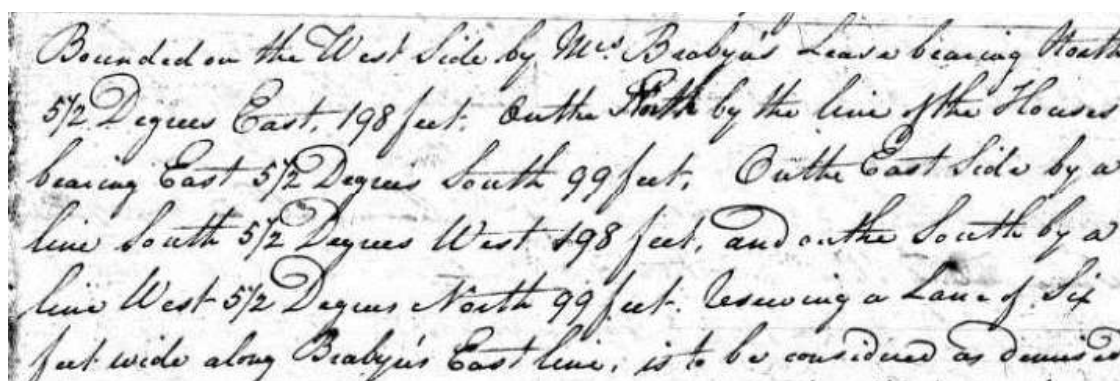 Bounded on the West Side by Mrs. Brabyn's Lease bearing North
5½ Degrees East, 198 feet. On the North by the line of the Houses
bearing East 5½ Degrees South 99 feet. On the East Side by a
line South 5½ Degrees West 198 feet, and on the South by a
line West 5½ Degrees North 99 feet. Reserving a Lane of Six
feet wide along Brabyn's East line, is to be considered as demised